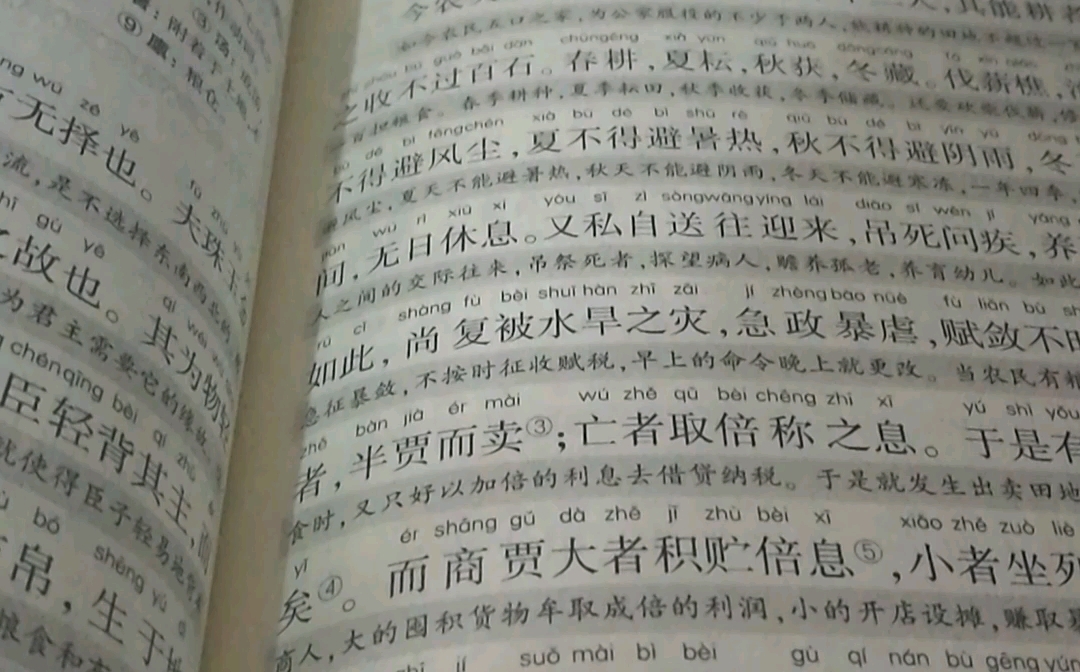 ③汤：流
⑨廪：粮仓。
wú zé yě
无择也。夫珠玉金
流，是不选择东南西北的
gù yě
故也。其为物轻
为君主需要它的缘故。
chénqīng bèi qí zhǔ
臣轻背其主，而
就使得臣子轻易地背
bó shēng yú
帛，生于
粮食和布
今农夫 人，其能耕者
如今农民五口之家，为公家服役的不少于两人，能耕种的田地不超过一百
shōu bú guò bǎi dàn chūngēng xià yún qiū huò dōngcáng fá xīn qiáo
之收不过百石。春耕，夏耘，秋获，冬藏。伐薪樵，
一百担粮食。春季耕种，夏季耘田，秋季收获，冬季储藏。还要砍柴伐薪，修
bù dé bì fēngchén xià bù dé bì shǔ rè qiū bù dé bì yīn yǔ dōng
不得避风尘，夏不得避暑热，秋不得避阴雨，冬
避风尘，夏天不能避暑热，秋天不能避阴雨，冬天不能避寒冻，一年四季，
wú rì xiū xi yòu sī zì sòngwǎngyíng lái diào sǐ wèn jí yǎng
间，无日休息。又私自送往迎来，吊死问疾，养
人之间的交际往来，吊祭死者，探望病人，赡养孤老，养育幼儿。如此
rú cǐ shàng fù bèi shuǐ hàn zhī zāi jí zhèng bào nüè fù liǎn bù
如此，尚复被水旱之灾，急政暴虐，赋敛不时
急征暴敛，不按时征收赋税，早上的命令晚上就更改。当农民有粮
zhě bàn jià ér mài wú zhě qǔ bèi chēng zhī xī yú shì yǒu
者，半贾而卖③；亡者取倍称之息。于是有
食时，又只好以加倍的利息去借贷纳税。于是就发生出卖田地
yǐ ér shāng gǔ dà zhě jī zhù bèi xī xiǎo zhě zuò liè
矣④。而商贾大者积贮倍息⑤，小者坐列
商人，大的囤积货物牟取成倍的利润，小的开店设摊，赚取
suǒ mài bì bèi gù qí nán bù gēng yún